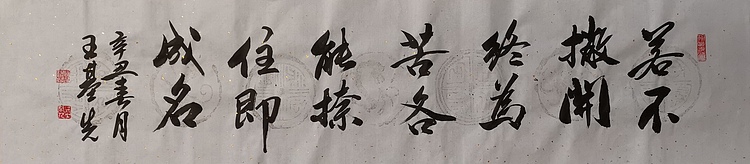 若不
撇開
終為
苦各
能捺
住即
成名
辛丑春月
王基先